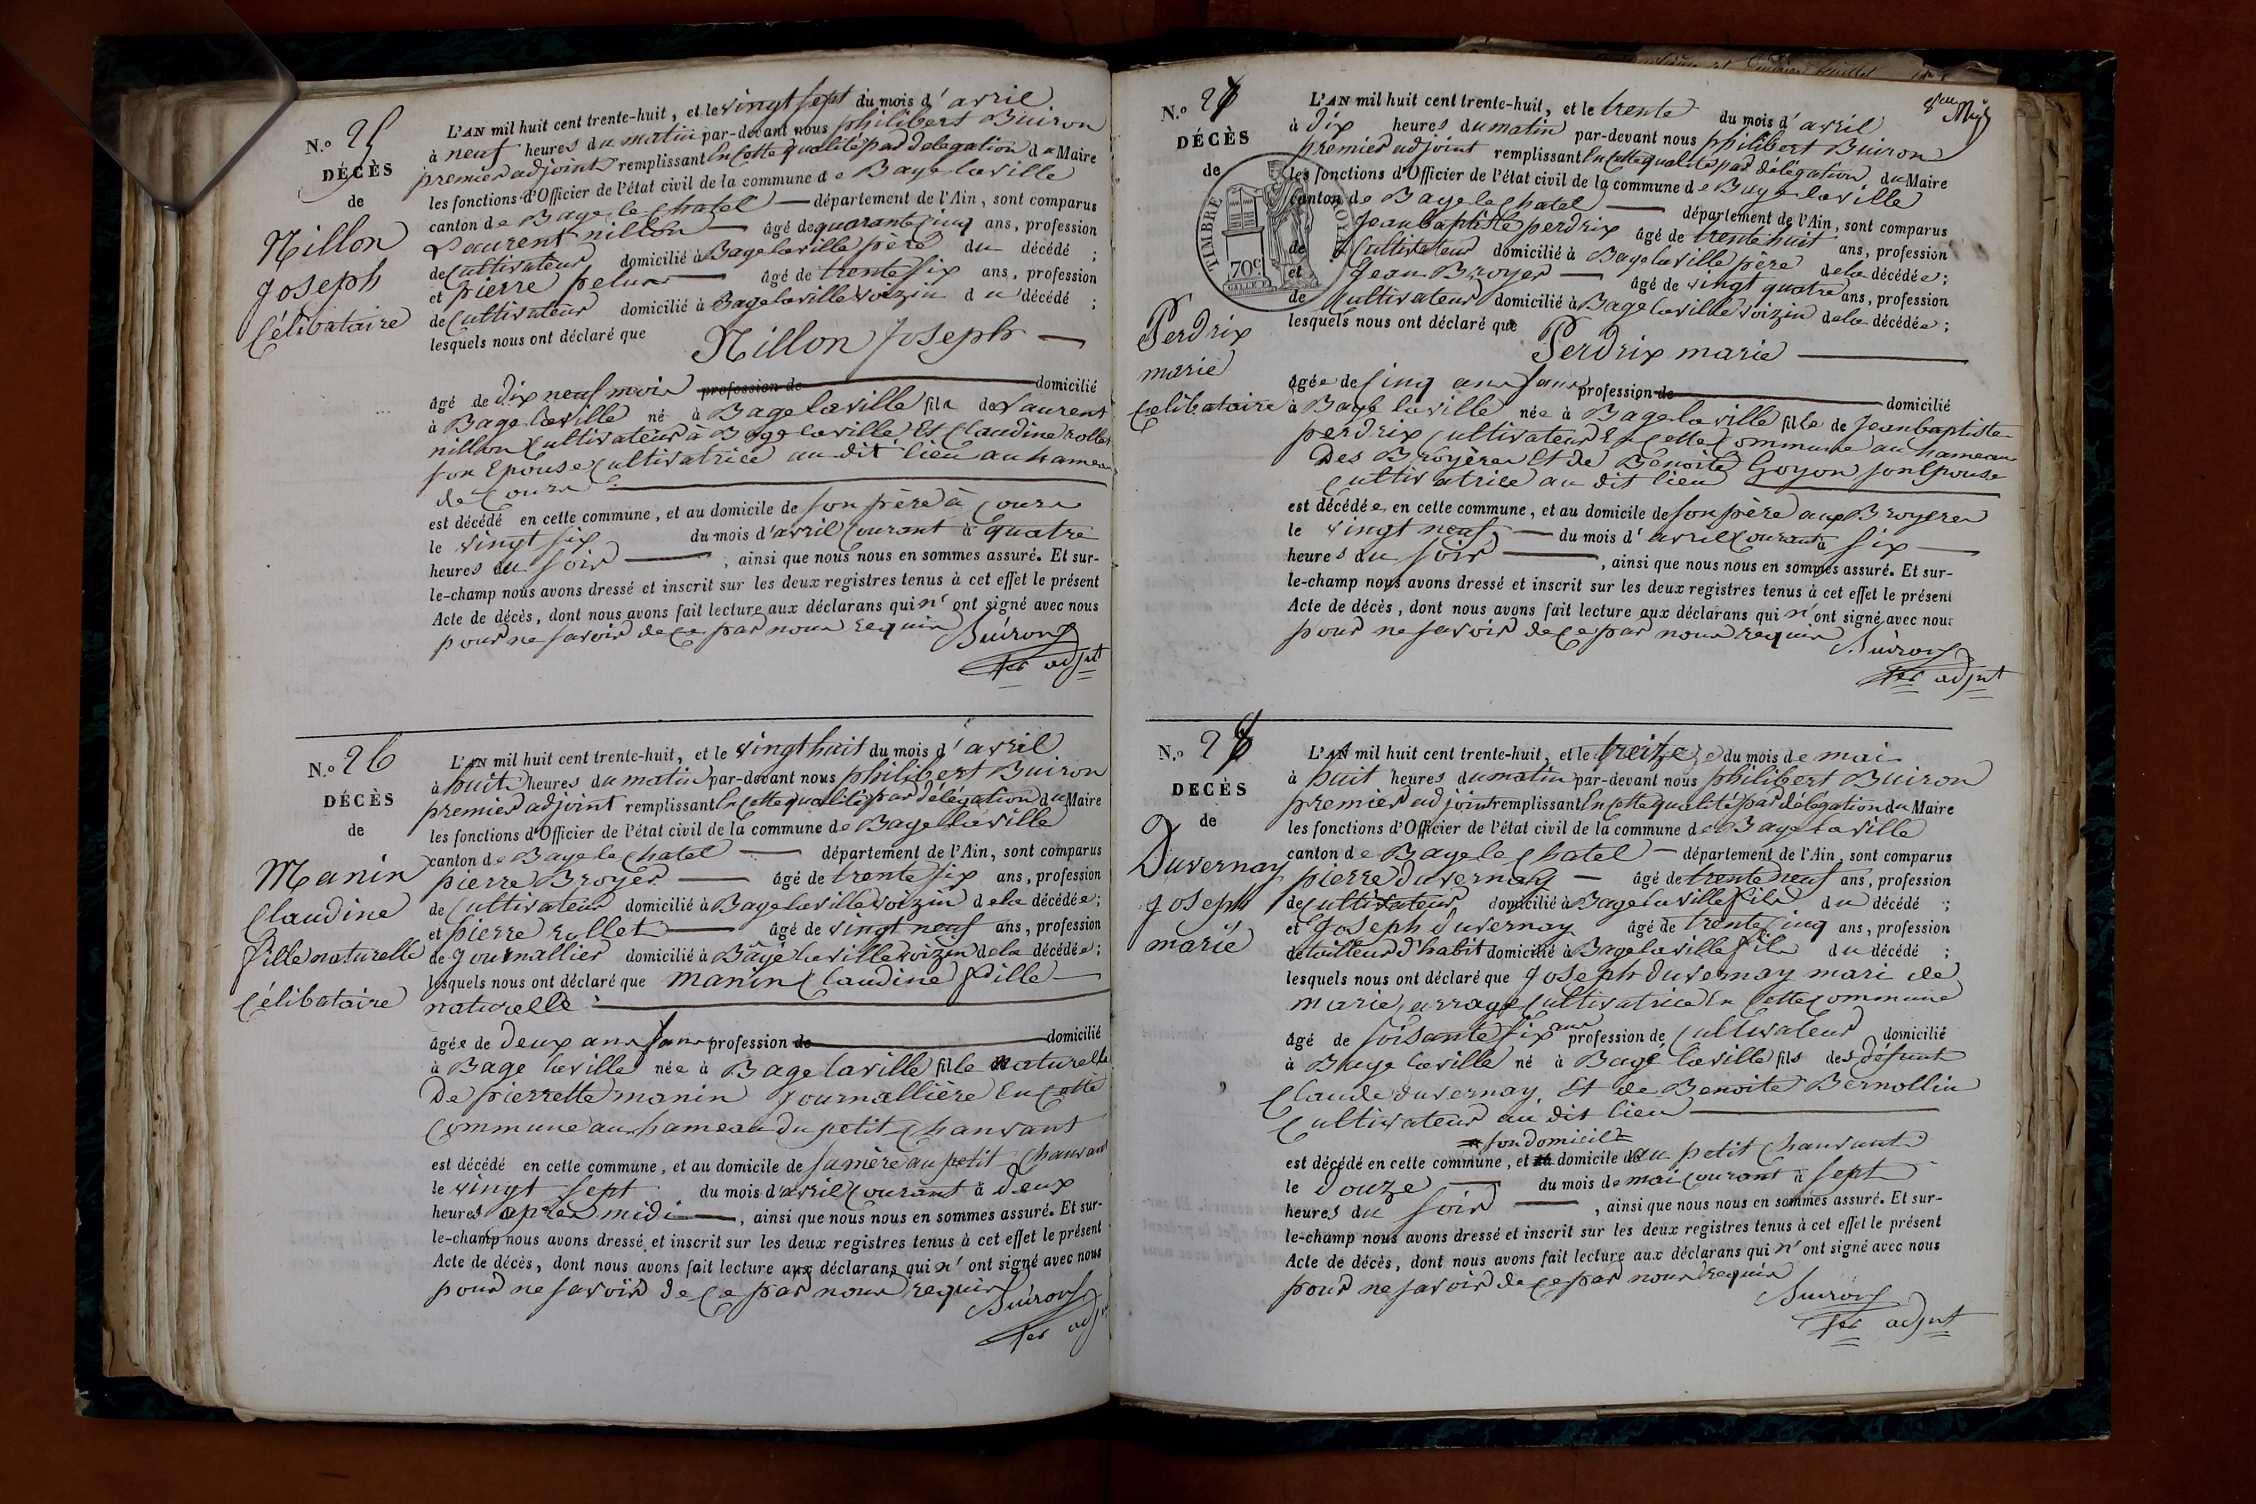 N.o 25
DÉCÈS
de
Nillon
Joseph
Célibataire
L'AN mil huit cent trente-huit, et le vingt sept du mois d'avril
à neuf heures du matin par-devant nous philibert Buiron
premier adjoint remplissant En Cette qualité par Délégation du Maire
les fonctions d'Officier de l'état civil de la commune de Bage la ville
canton de Bage le Chatel département de l'Ain, sont comparus
Laurent nillon âgé de quarante Cinq ans, profession
de Cultivateur domicilié à Bage la ville père du décédé ;
et pierre pelus âgé de trente six ans, profession
de Cultivateur domicilié à Bage la ville voizin du décédé ;
lesquels nous ont déclaré que Nillon Joseph
âgé de dix neuf mois profession de domicilié
à Bage la ville né à Bage la ville fils de Laurent
nillon Cultivateur à Bage la ville Et Claudine rollet
son Epouse Cultivatrice au dit lieu au hameau
de Cours
est décédé en cette commune, et au domicile de son père à Cours
le vingt six du mois d'avril Courant à quatre
heures du soir ; ainsi que nous nous en sommes assuré. Et sur-
le-champ nous avons dressé et inscrit sur les deux registres tenus à cet effet le présent
Acte de décès, dont nous avons fait lecture aux déclarans qui n'ont signé avec nous
pour ne savoir de ce par nous requis
Buiron
1er adjnt
N.o 26
DÉCÈS
de
Manin
Claudine
fille naturelle
Célibataire
L'AN mil huit cent trente-huit, et le vingt huit du mois d'avril
à huit heures du matin par-devant nous philibert Buiron
premier adjoint remplissant En Cette qualité par délégation du Maire
les fonctions d'Officier de l'état civil de la commune de Bage la ville
canton de Bage le Chatel département de l'Ain, sont comparus
pierre Broyer âgé de trente six ans, profession
de Cultivateur domicilié à Bage la ville voizin de la décédée ;
et pierre rollet âgé de vingt neuf ans, profession
de Journallier domicilié à Bâgé la ville voizin de la décédée ;
lesquels nous ont déclaré que manin Claudine fille
naturelle
âgée de deux ans sans profession de domicilié
à Bage la ville née à Bage la ville fille naturelle
De pierrette manin Journallière En Cette
Commune au hameau du petit Chanvant
est décédé en cette commune, et au domicile de sa mère au petit Chanvant
le vingt sept du mois d'avril Courant à deux
heures après midi, ainsi que nous nous en sommes assuré. Et sur-
le-champ nous avons dressé et inscrit sur les deux registres tenus à cet effet le présent
Acte de décès, dont nous avons fait lecture aux déclarans qui n'ont signé avec nous
pour ne savoir de ce par nous requis
Buiron
1er adj
N.o 27
DÉCÈS
de
TIMBRE ROYAL
70c
Perdrix
marie
Celibataire
L'AN mil huit cent trente-huit, et le trente du mois d'avril
à dix heures du matin par-devant nous philibert Buiron
premier adjoint remplissant En Cette qualité par délégation du Maire
les fonctions d'Officier de l'état civil de la commune de Bage la ville
canton de Bage le Chatel département de l'Ain, sont comparus
Jean baptiste perdrix âgé de trente huit ans, profession
de Cultivateur domicilié à Bage la ville père de la décédée ;
et Jean Broyer âgé de vingt quatre ans, profession
de Cultivateur domicilié à Bage la ville voizin de la décédée ;
lesquels nous ont déclaré que Perdrix marie
âgée de Cinq ans sans profession de domicilié
à Bage la ville née à Bage la ville fille de Jean baptiste
perdrix Cultivateur En Cette Commune au hameau
Des Broyères Et de Benoite Goyon son Epouse
Cultivatrice au dit lieu
est décédée en cette commune, et au domicile de son père aux Broyeres
le vingt neuf du mois d'avril Courant à six
heures du soir, ainsi que nous nous en sommes assuré. Et sur-
le-champ nous avons dressé et inscrit sur les deux registres tenus à cet effet le présent
Acte de décès, dont nous avons fait lecture aux déclarans qui n'ont signé avec nous
pour ne savoir de ce par nous requis
Buiron
1er adjnt
N.o 28
DECÈS
de
Duvernay
Joseph
marié
L'AN mil huit cent trente-huit, et le treize du mois de mai
à huit heures du matin par-devant nous philibert Buiron
premier adjoint remplissant En Cette qualité par délégation du Maire
les fonctions d'Officier de l'état civil de la commune de Bage la ville
canton de Bage le Chatel département de l'Ain, sont comparus
pierre duvernay âgé de trente neuf ans, profession
de Cultivateur domicilié à Bage la ville fils du décédé ;
et Joseph duvernay âgé de trente Cinq ans, profession
de tailleur d'habit domicilié à Bage la ville fils du décédé ;
lesquels nous ont déclaré que Joseph duvernay mari de
marie Cultivatrice En Cette Commune
âgé de soisante six ans profession de Cultivateur domicilié
à Bage la ville né à Bage la ville fils des défunt
Claude duvernay Et de Benoite Bernollin
Cultivateur au dit lieu
son domicile
est décédé en cette commune, et au domicile de au petit Chanvant
le douze du mois de mai Courant à sept
heures du soir, ainsi que nous nous en sommes assuré. Et sur-
le-champ nous avons dressé et inscrit sur les deux registres tenus à cet effet le présent
Acte de décès, dont nous avons fait lecture aux déclarans qui n'ont signé avec nous
pour ne savoir de ce par nous requis
Buiron
1er adjnt